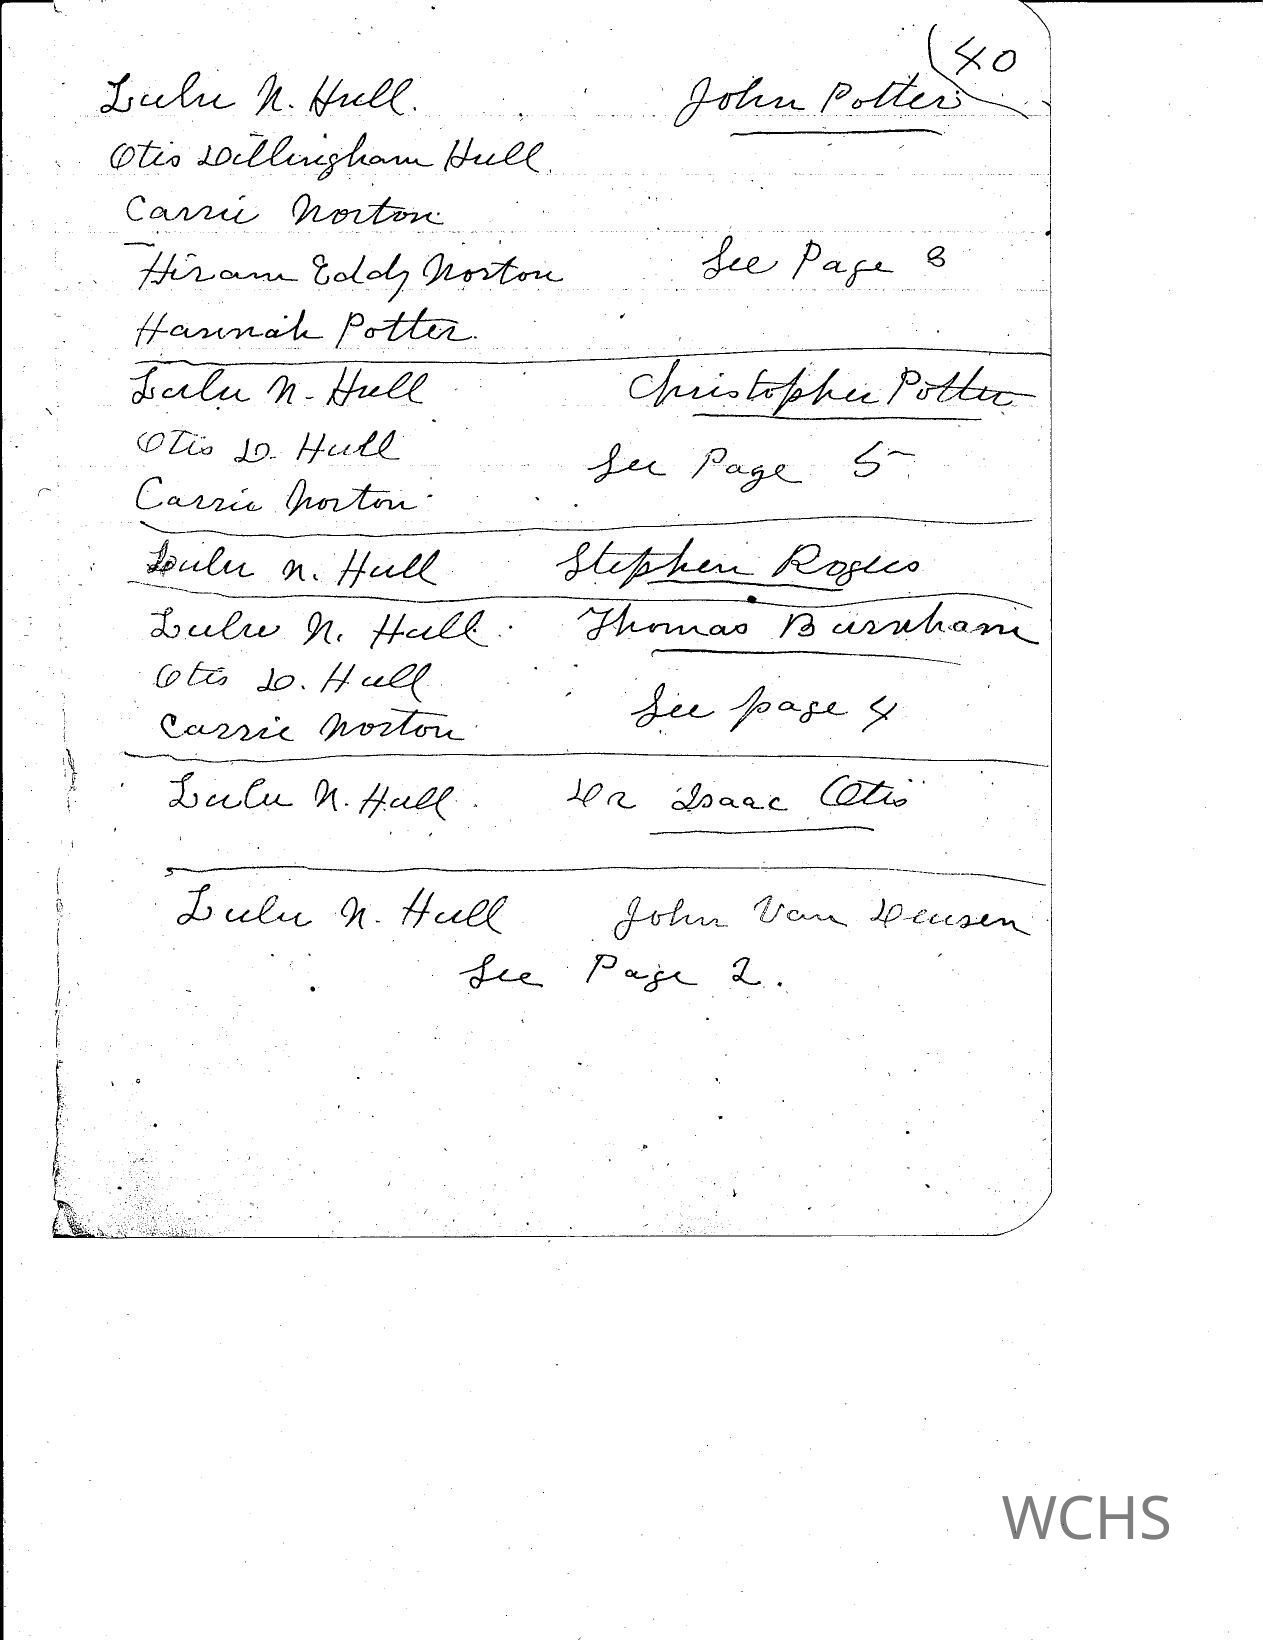 40
Lulu N. Hull. John Potter
Otis Dillingham Hull.
Carrie Norton
Hiram Eddy Norton See Page 8
Hannah Potter.
Lulu N. Hull Christopher Potter
Otis D. Hull See Page 5
Carrie Norton
Lulu N. Hull Stephen Rogers
Lulu N. Hull. Thomas Burnham
Otis D. Hull See page 4
Carrie Norton
Lulu N. Hull. Dr Isaac Otis
Lulu N. Hull John Van Deusen
See Page 2.
WCHS